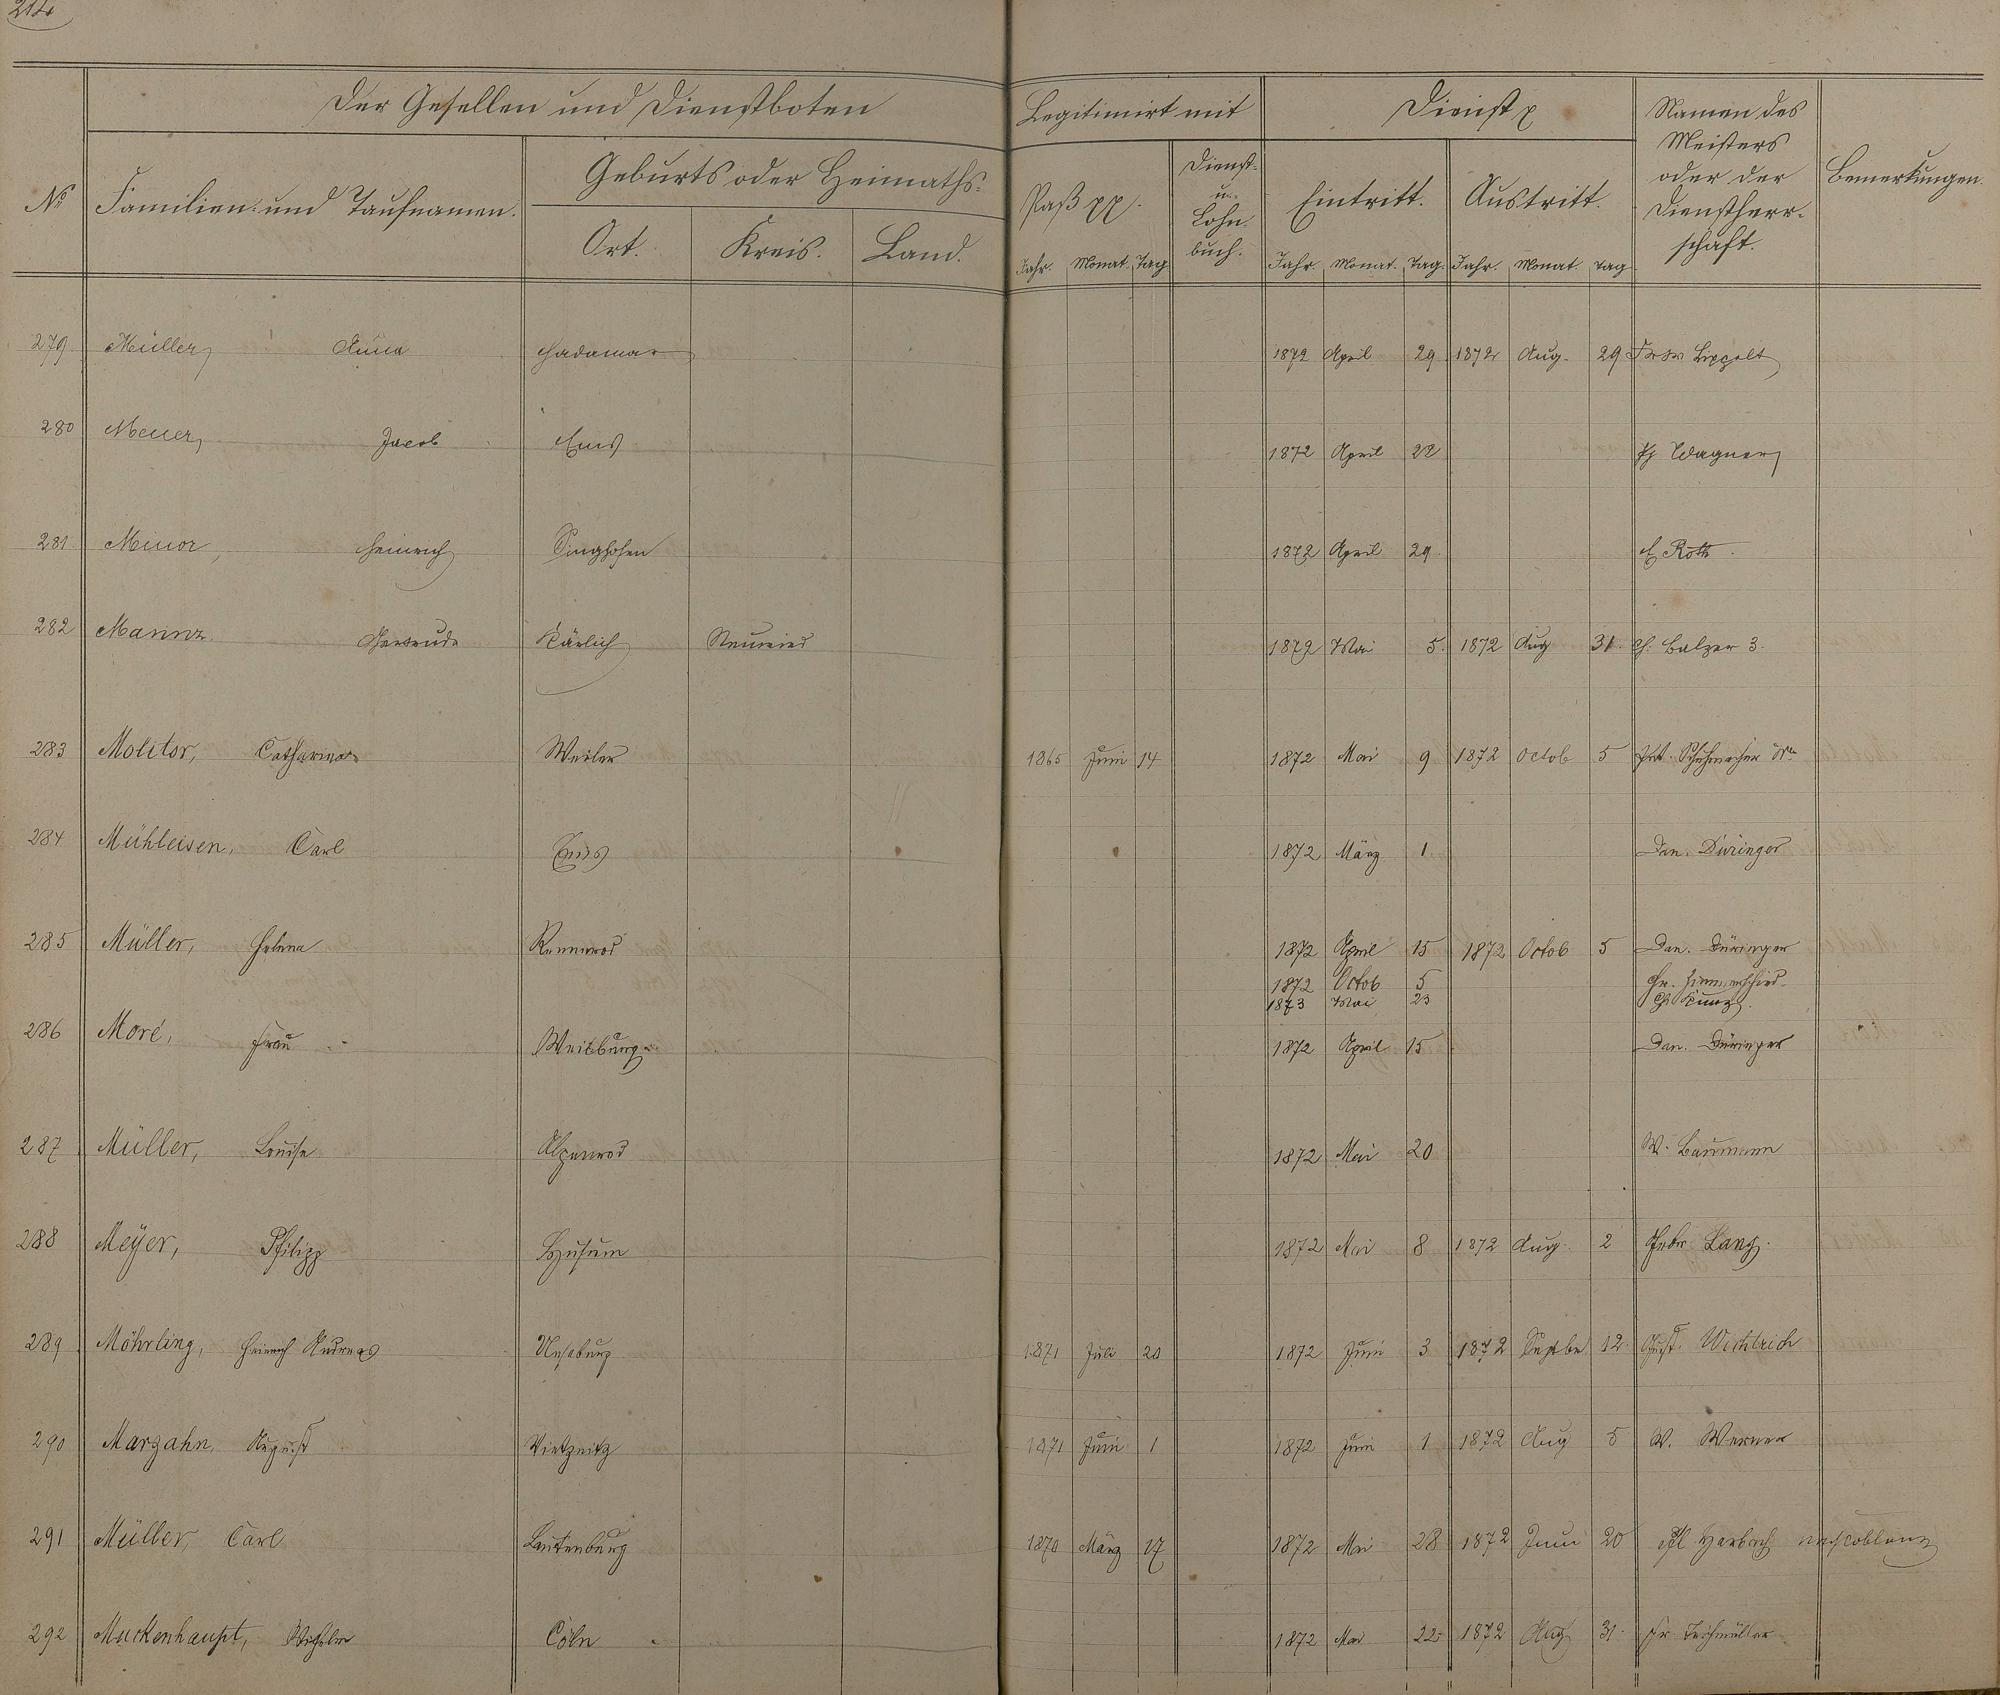 214
Der Gesellen und Dienstboten Legitimirt mit Dienst Namen des Meisters oder der Dienstherr- schaft. Bemerkungen.
No Familien- und Taufnamen. Geburts oder Heimaths- Paß pp. Dienst- u. Lohn- buch. Eintritt. Austritt.
Ort. Kreis. Land. Jahr. Monat. Tag. Jahr. Monat. Tag. Jahr. Monat. Tag
279 Müller, Anna Hadamar 1872 April 29 1872 Aug. 29 Lippelt
280 Jacob Ems 1872 April 22 Wagner
281 Minor, Heinrich Singhofen 1872 April 29. Roth.
282 Mannz. Gertrude Kärlich Neuwied 1872 Mai 5. 1872 Aug 31. Balzer 3.
283 Molitor, Catharina Weiler 1865 Juni 14 1872 Mai 9 1872 Octob 5 Schuhmacher
284 Mühleisen, Carl Ems 1872 März 1. Dan. Düringer
285 Müller, Helena Rennerod 1872 April 15 1872 Octob 5 Dan. Düringer
1872 Octob 5
1873 Mai 23 Kunz.
286 Moré, Frau Weilburg 1872 April 15 Dan. Düringer
287 Müller, Louise Alpenrod 1872 Mai 20 W. Baumann
288 Meÿer, Philipp Husum 1872 Mai 8 1872 Aug. 2 Gebr. Lang.
289 Möhrling, Heinrich Andreas 1871 Juli 20 1872 Juni 3 1872 Septbr 12.
290 Marzahn, August Vietznitz 1871 Juni 1 1872 Juni 1 1872 Aug 5 W. Werner
291 Müller, Carl Lautenburg 1870 März 17 1872 Mai 28 1872 Juni 20 Harbach nach Coblenz
292 Muckenhaupt, Wilhelm Cöln 1872 Mai 22 1872 Aug 31. Fr Teichmüller